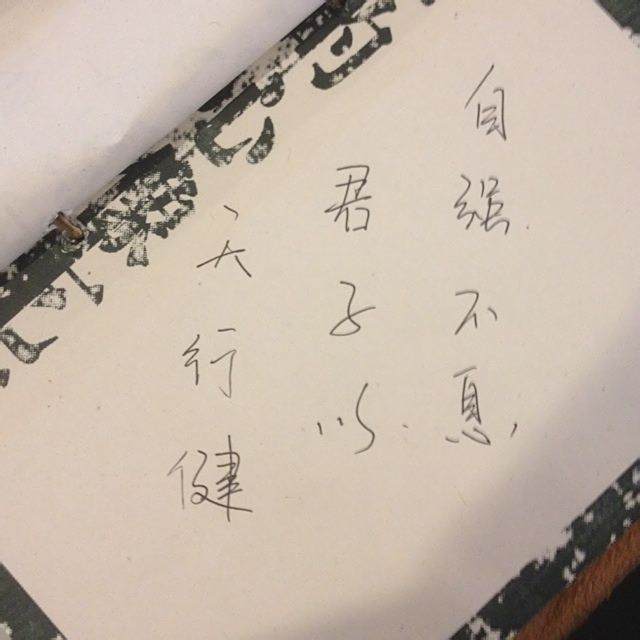 天行健
君子以
自强不息